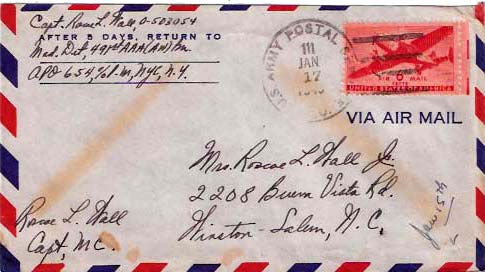 Capt. Roscoe L. Wall, O-503054
AFTER 5 DAYS, RETURN TO
Med. Det, 491st AAA (AW) Bn.
APO 654, % P.M, NYC, N.Y.
U.S. ARMY POSTAL
111
JAN
17
AIR MAIL
UNITED STATES OF AMERICA
VIA AIR MAIL
Mrs. Roscoe L. Wall Jr.
2208 Buena Vista Rd.
Winston-Salem, N.C.
Roscoe L. Wall
Capt, MC.
Jan 15th